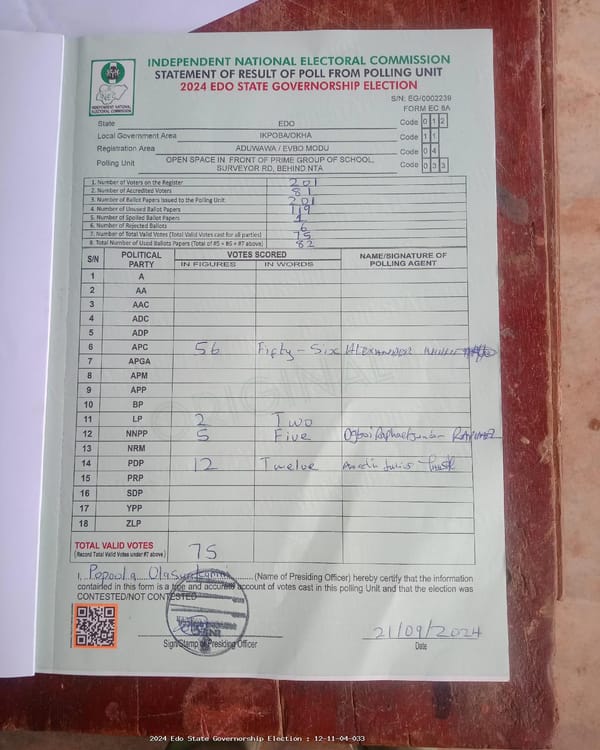 INDEPENDENT NATIONAL ELECTORAL COMMISSION
STATEMENT OF RESULT OF POLL FROM POLLING UNIT
2024 EDO STATE GOVERNORSHIP ELECTION
INEC
INDEPENDENT NATIONAL
ELECTORAL COMMISSION
S/N: EG/0002239
FORM EC 8A
State EDO Code 0 1 2
Local Government Area IKPOBA/OKHA Code 1 1
Registration Area ADUWAWA / EVBO MODU Code 0 4
Polling Unit OPEN SPACE IN FRONT OF PRIME GROUP OF SCHOOL, SURVEYOR RD, BEHIND NTA Code 0 3 3
1. Number of Voters on the Register 201
2. Number of Accredited Voters 81
3. Number of Ballot Papers Issued to the Polling Unit 201
4. Number of Unused Ballot Papers 119
5. Number of Spoiled Ballot Papers 1
6. Number of Rejected Ballots 6
7. Number of Total Valid Votes (Total Valid Votes cast for all parties) 75
8. Total Number of Used Ballots Papers (Total of #5 + #6 + #7 above) 82
S/N POLITICAL PARTY VOTES SCORED NAME/SIGNATURE OF POLLING AGENT
IN FIGURES IN WORDS
1 A
2 AA
3 AAC
4 ADC
5 ADP
6 APC 56 Fifty-Six ALEXANDER
7 APGA
8 APM
9 APP
10 BP
11 LP 2 Two
12 NNPP 5 Five
13 NRM
14 PDP 12 Twelve
15 PRP
16 SDP
17 YPP
18 ZLP
ORIGINAL
TOTAL VALID VOTES 75
(Record Total Valid Votes under #7 above)
I, Popoola (Name of Presiding Officer) hereby certify that the information
contained in this form is a true and accurate account of votes cast in this polling Unit and that the election was
CONTESTED/NOT CONTESTED
21/09/2024
Sign/Stamp of Presiding Officer Date
2024 Edo State Governorship Election : 12-11-04-033